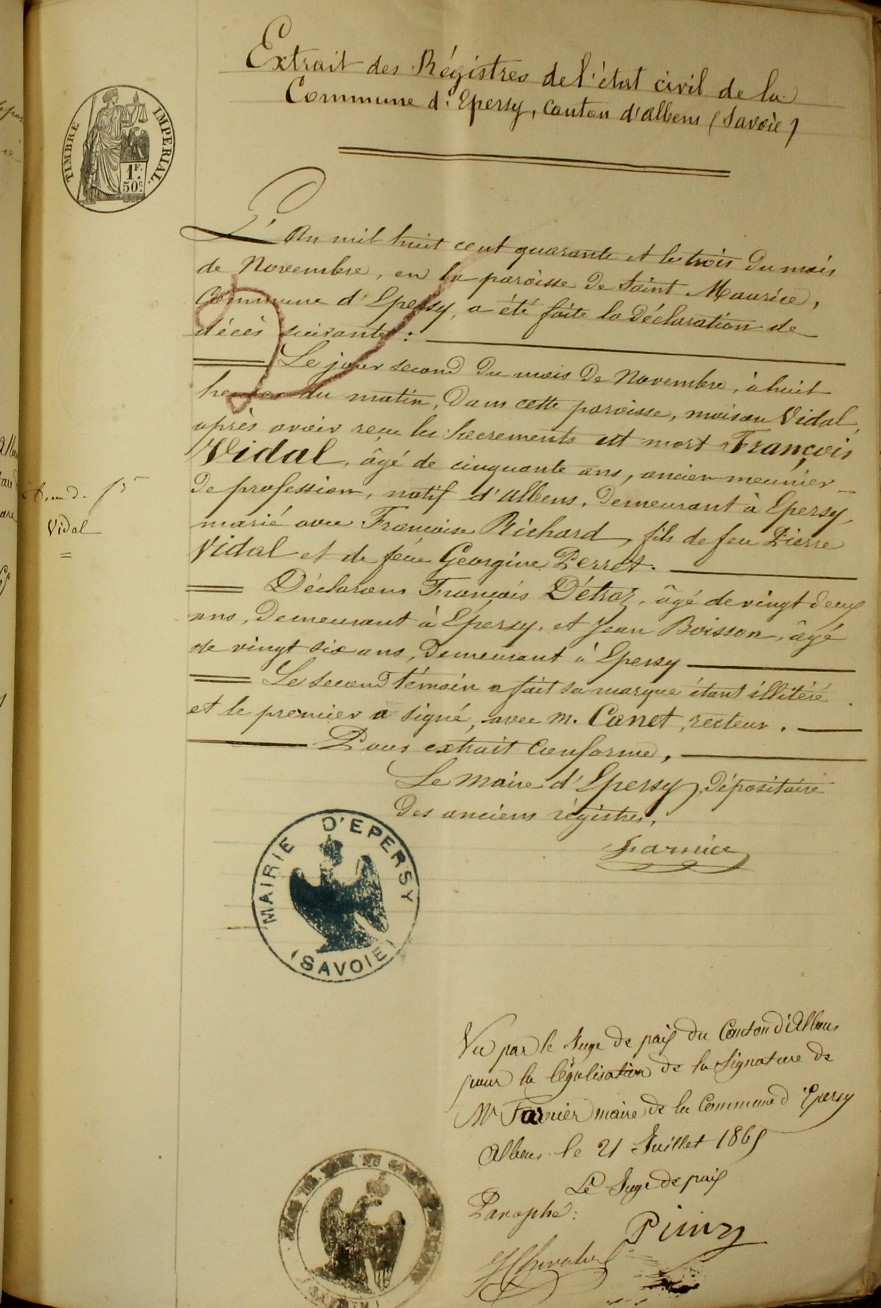 Extrait des Régistres de l'état civil de la
Commune d'Epersy, canton d'albens (Savoie)
TIMBRE IMPERIAL
1F.
50c.
L'an mil huit cent quarante et le trois du mois
de Novembre, en la paroisse de Saint Maurice,
commune d'Epersy, a été faite la déclaration de
décès suivante :
Le jour second du mois de Novembre, à huit
heures du matin, dans cette paroisse, maison Vidal,
après avoir reçu les sacrements est mort François
Vidal, âgé de cinquante ans, ancien meunier
de profession, natif d'albens, demeurant à Epersy,
marié avec Françoise Richard, fils de feu Pierre
Vidal et de feue Georgine Perret.
Vidal
Déclarans François Détraz, âgé de vingt deux
ans, demeurant à Epersy, et Jean Boisson, âgé
de vingt six ans, demeurant à Epersy
Le second témoin a fait sa marque étant illitéré
et le premier a signé, avec M. Canet, recteur.
Pour extrait conforme,
Le Maire d'Epersy, dépositaire
des anciens régistres,
MAIRIE D'EPERSY
(SAVOIE)
Vu par le Juge de paix du Canton d'Albens
pour la légalisation de la Signature de
Mr Farnier maire de la Commune d'Epersy
Albens le 21 Juillet 1865
Le Juge de paix
Paraphé :